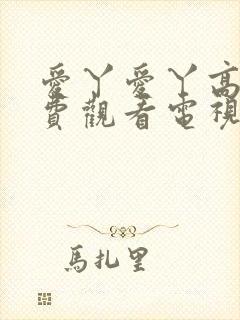 愛丫愛丫高
費觀看電視
馬扎里